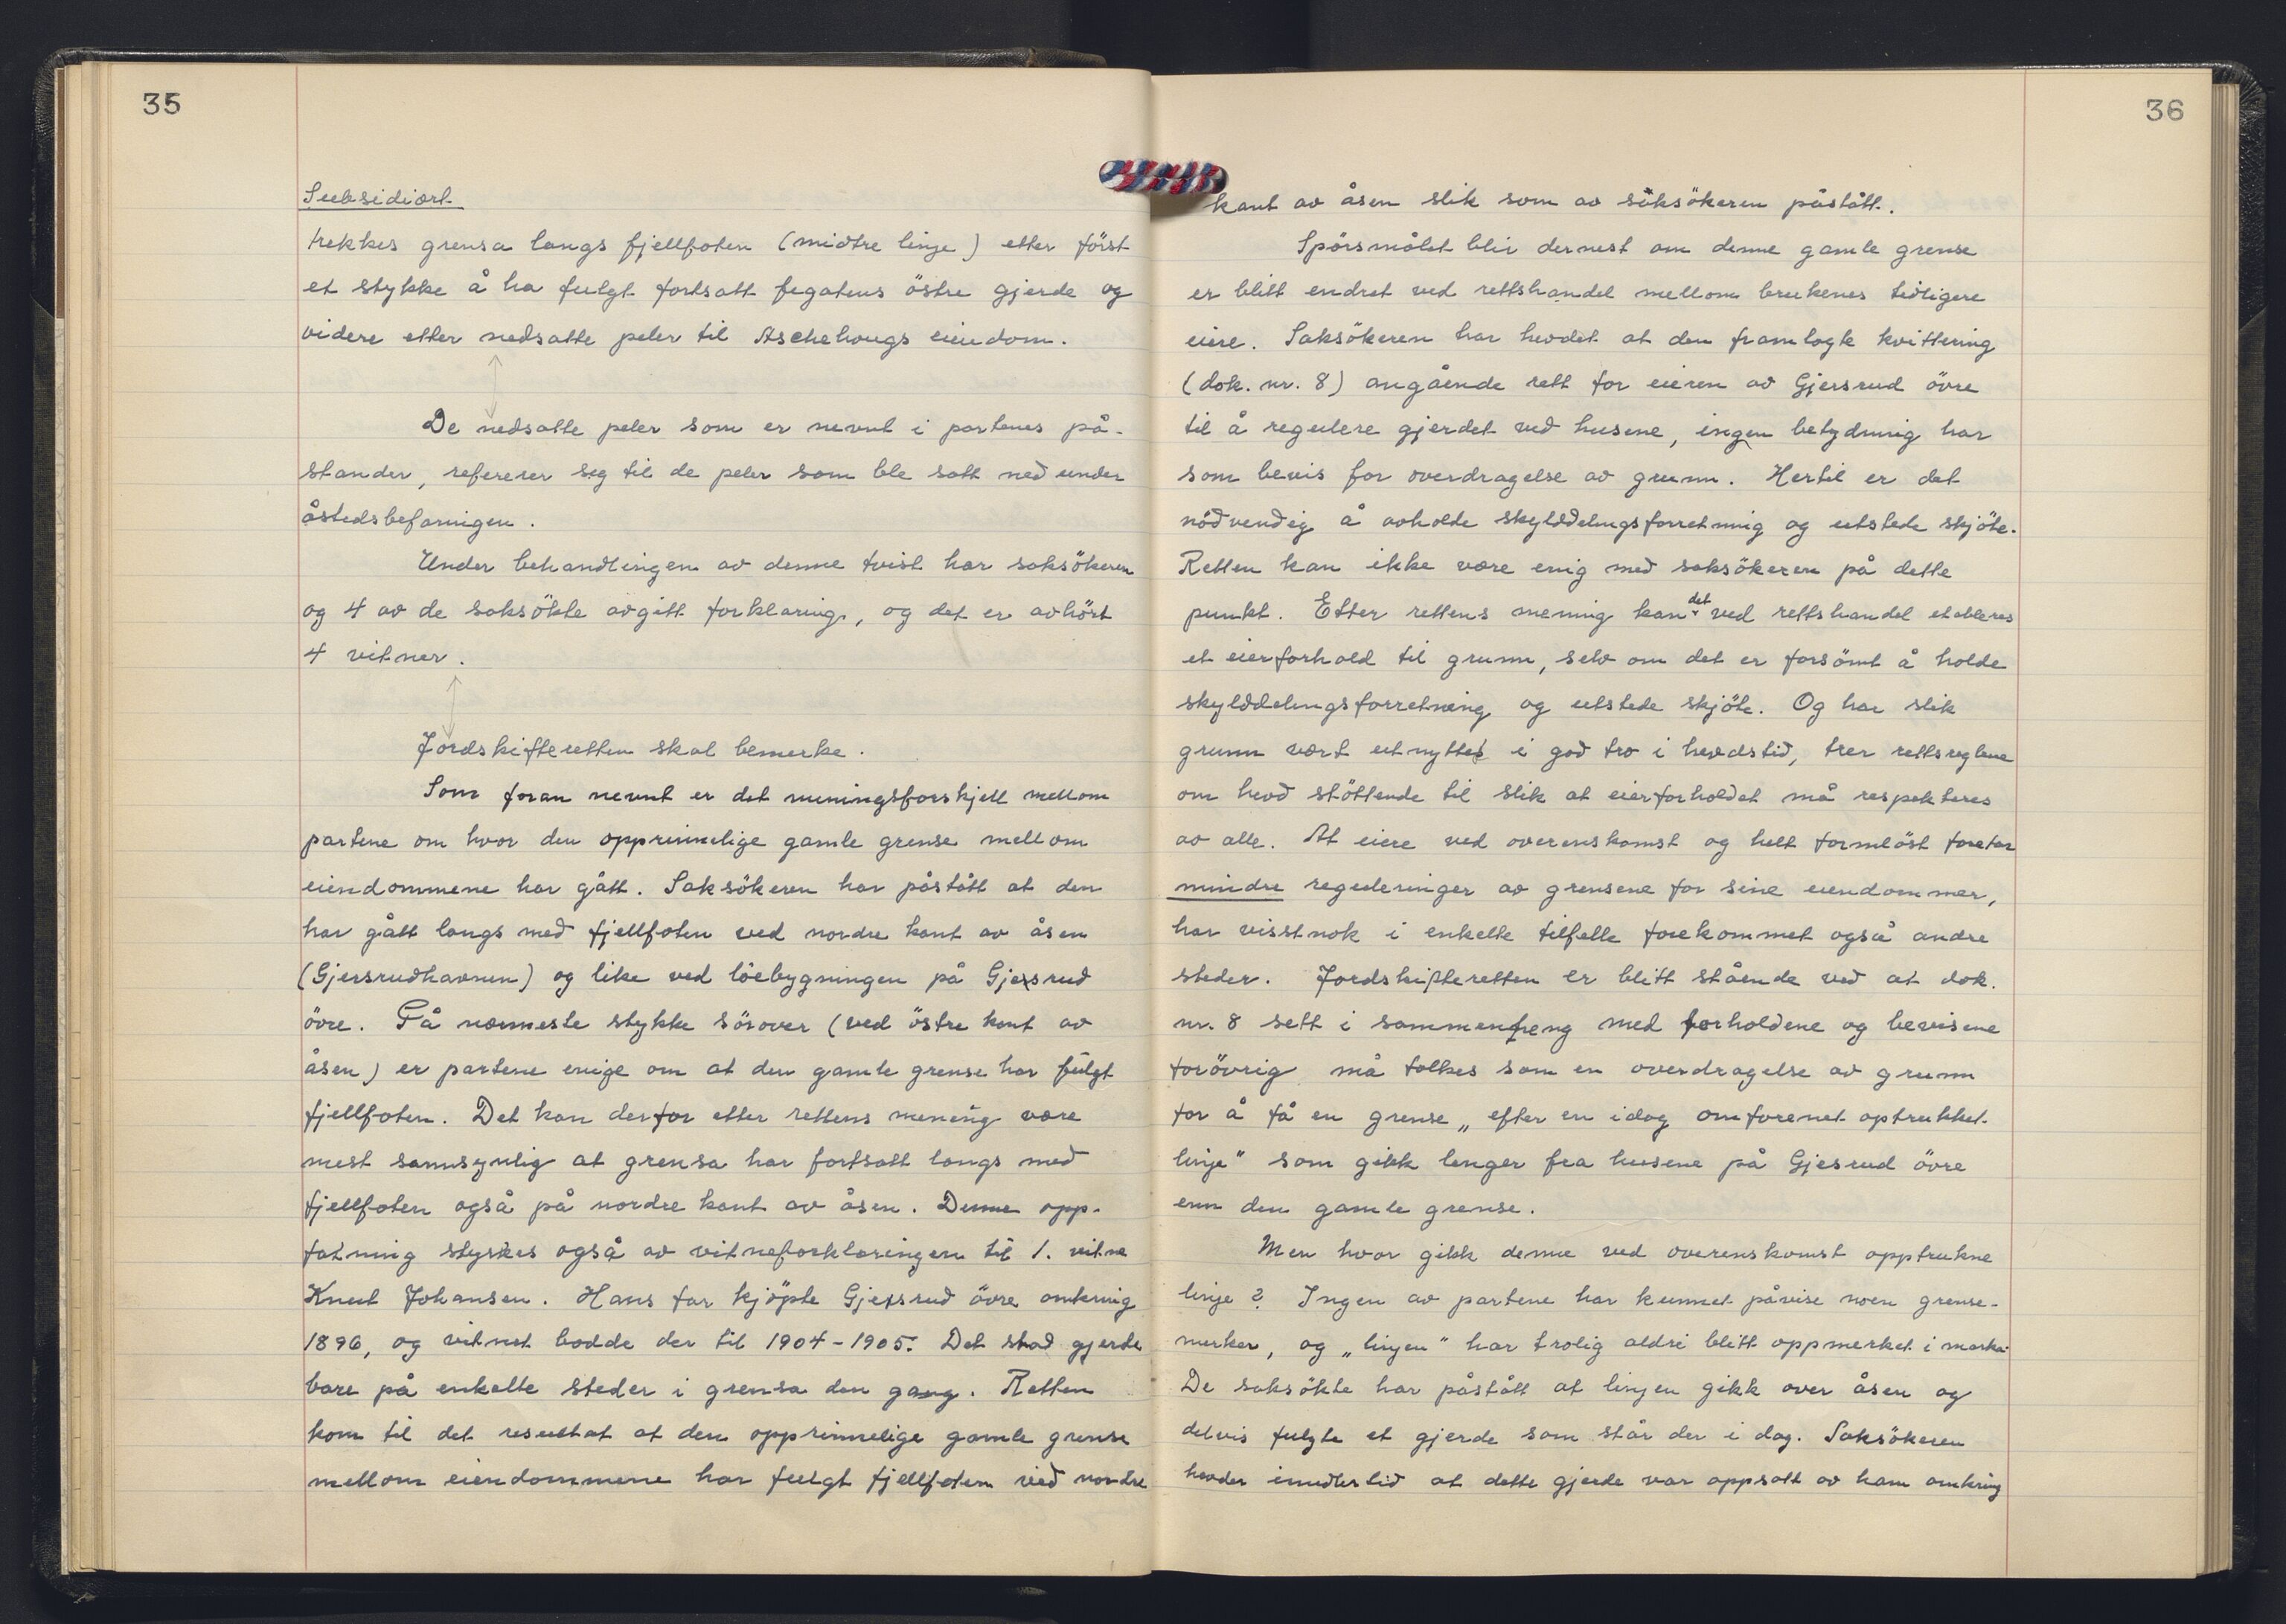 35
Subsidiært
trekkes grensa langs fjellfoten (midtre linje) etter först
et stykke å ha fulgt fortsatt fegatens östre gjerde og
videre etter nedsatte peler til Aschehougs eiendom.
De nedsatte peler som er nevnt i partenes på-
stander, refererer seg til de peler som ble satt ned under
åstedsbefaringen.
Under behandlingen av denne tvist har saksökeren
og 4 av de saksökte avgitt forklaring, og det er avhört
4 vitner.
Jordskifteretten skal bemerke.
Som foran nevnt er det meningsforskjell mellom
partene om hvor den opprinnelige gamle grense mellom
eiendommene har gått. Saksökeren har påstått at den
har gått langs med fjellfoten ved nordre kant av åsen
(Gjersrudhavnen) og like ved löebygningen på Gjersrud
övre. På nærmeste stykke sörover (ved östre kant av
åsen) er partene enige om at den gamle grense har fulgt
fjellfoten. Det kan derfor etter rettens mening være
mest sannsynlig at grensa har fortsatt langs med
fjellfoten også på nordre kant av åsen. Denne opp-
fatning styrkes også av vitneforklaringen til 1. vitne
Knut Johansen. Hans far kjöpte Gjersrud övre omkring
1896, og vitnet bodde der til 1904-1905. Det stod gjerde
bare på enkelte steder i grensa den gang. Retten
kom til det resultat at den opprinnelige gamle grense
mellom eiendommene har fulgt fjellfoten ved nordre
36
kant av åsen slik som av saksökeren påstått.
Spörsmålet blir dernest om denne gamle grense
er blitt endret ved rettshandel mellom brukenes tidligere
eiere. Saksökeren har hevdet at den framlagte kvittering
(dok. nr. 8) angående rett for eieren av Gjersrud övre
til å regulere gjerdet ved husene, ingen betydning har
som bevis for overdragelse av grunn. Hertil er det
nödvendig å avholde skylddelingsforretning og utstede skjöte.
Retten kan ikke være enig med saksökeren på dette
punkt. Etter rettens mening kan det ved rettshandel etableres
et eierforhold til grunn, selv om det er forsömt å holde
skylddelingsforretning og utstede skjöte. Og har slik
grunn vært utnyttet i god tro i hevdstid, trer rettsreglene
om hevd stöttende til slik at eierforholdet må respekteres
av alle. At eiere ved overenskomst og helt formlöst foretar
mindre reguleringer av grensene for sine eiendommer,
har visstnok i enkelte tilfelle forekommet også andre
steder. Jordskifteretten er blitt stående ved at dok.
nr. 8 sett i sammenheng med forholdene og bevisene
forövrig må tolkes som en overdragelse av grunn
for å få en grense „efter en idag omforenet optrukket
linje" som gikk lenger fra husene på Gjesrud övre
enn den gamle grense.
Men hvor gikk denne ved overenskomst opptrukne
linje? Ingen av partene har kunnet påvise noen grense-
merker, og „linjen" har trolig aldri blitt oppmerket i marka.
De saksökte har påstått at linjen gikk over åsen og
delvis fulgte et gjerde som står der i dag. Saksökeren
hevder imidlertid at dette gjerde var oppsatt av ham omkring